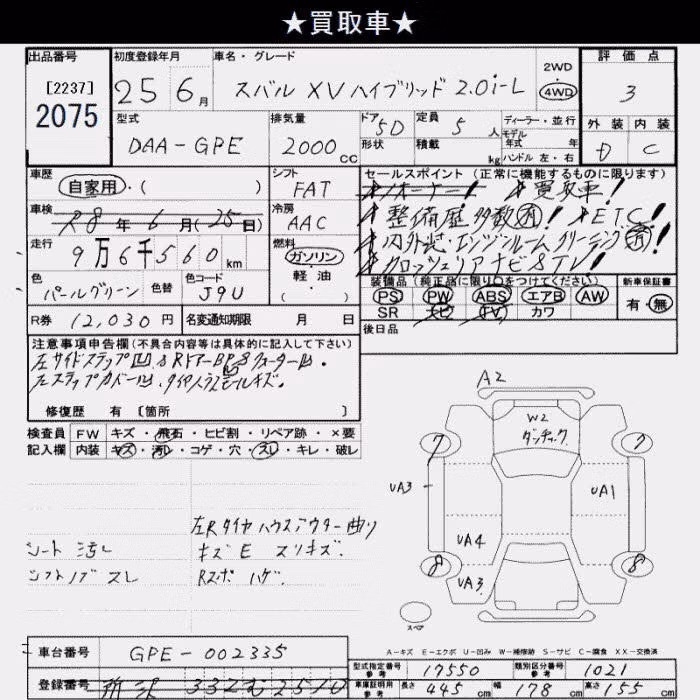 ★買取車★
出品番号 初度登録年月 車名・グレード 評価点
[2237]
2075
25 6月
スバル XVハイブリッド 2.0i-L
2WD
・
4WD
3
型式 排気量 ドア 定員 ディーラー・並行 外装 内装
DAA-GPE 2000cc 5D 5人
モデル年式 年
D C
形状 積載 kg ハンドル 左・右
車歴 シフト セールスポイント(正常に機能するものに限ります)
自家用・( ) FAT
ワンオーナー! 買取車!
車検 冷房
R8年6月(25日) AAC
整備歴多数有! ETC!
走行 燃料
9万6千560km ガソリン
軽・油
・( )
内外装・エンジンルームクリーニング済!
クラッツェリアナビ&TV!
色 色替 色コード
パールグリーン J9U
装備品(純正品に限り○をつけてください) 新車保証書
PS PW ABS エアB AW 有・無
SR ナビ TV カワ
R券 12,030円 名変通知期限 月 日
後日品
注意事項申告欄(不具合内容等は具体的に記入して下さい)
修復歴 有 [箇所 ]
検査員 FW キズ・飛石・ヒビ割・リペア跡・×要
記入欄 内装 キズ・汚レ・コゲ・穴・スレ・キレ・破レ
A2
W2
7 7
UA3 UA1
UA4
8 8
UA3
左Rタイヤハウスアウター曲り
シート汚レ キズE スリキズ.
シフトノブスレ Rスポ ハゲ.
スペア
A-キズ E-エクボ U-凹み W-補修跡 S-サビ C-腐食 XX-交換済
車台番号 GPE-002335
型式指定番号 参考 17550 類別区分番号 参考 1021
登録番号
車庫証明用 参考 長さ 445cm 幅 178cm 高さ 155cm